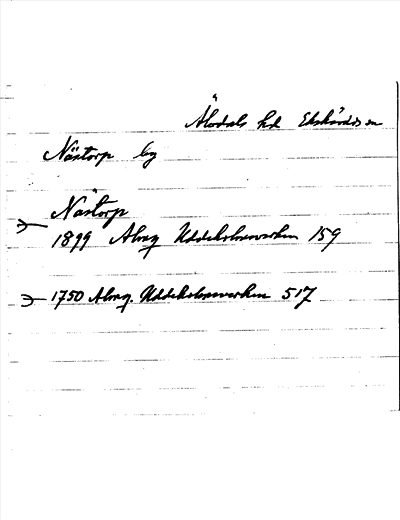 Älvdals hd Ekshärads sn
Nästorp by
Nästorp
1899 Alvaq Uddeholmsverken 159
1750 Alvaq. Uddeholmsverken 517